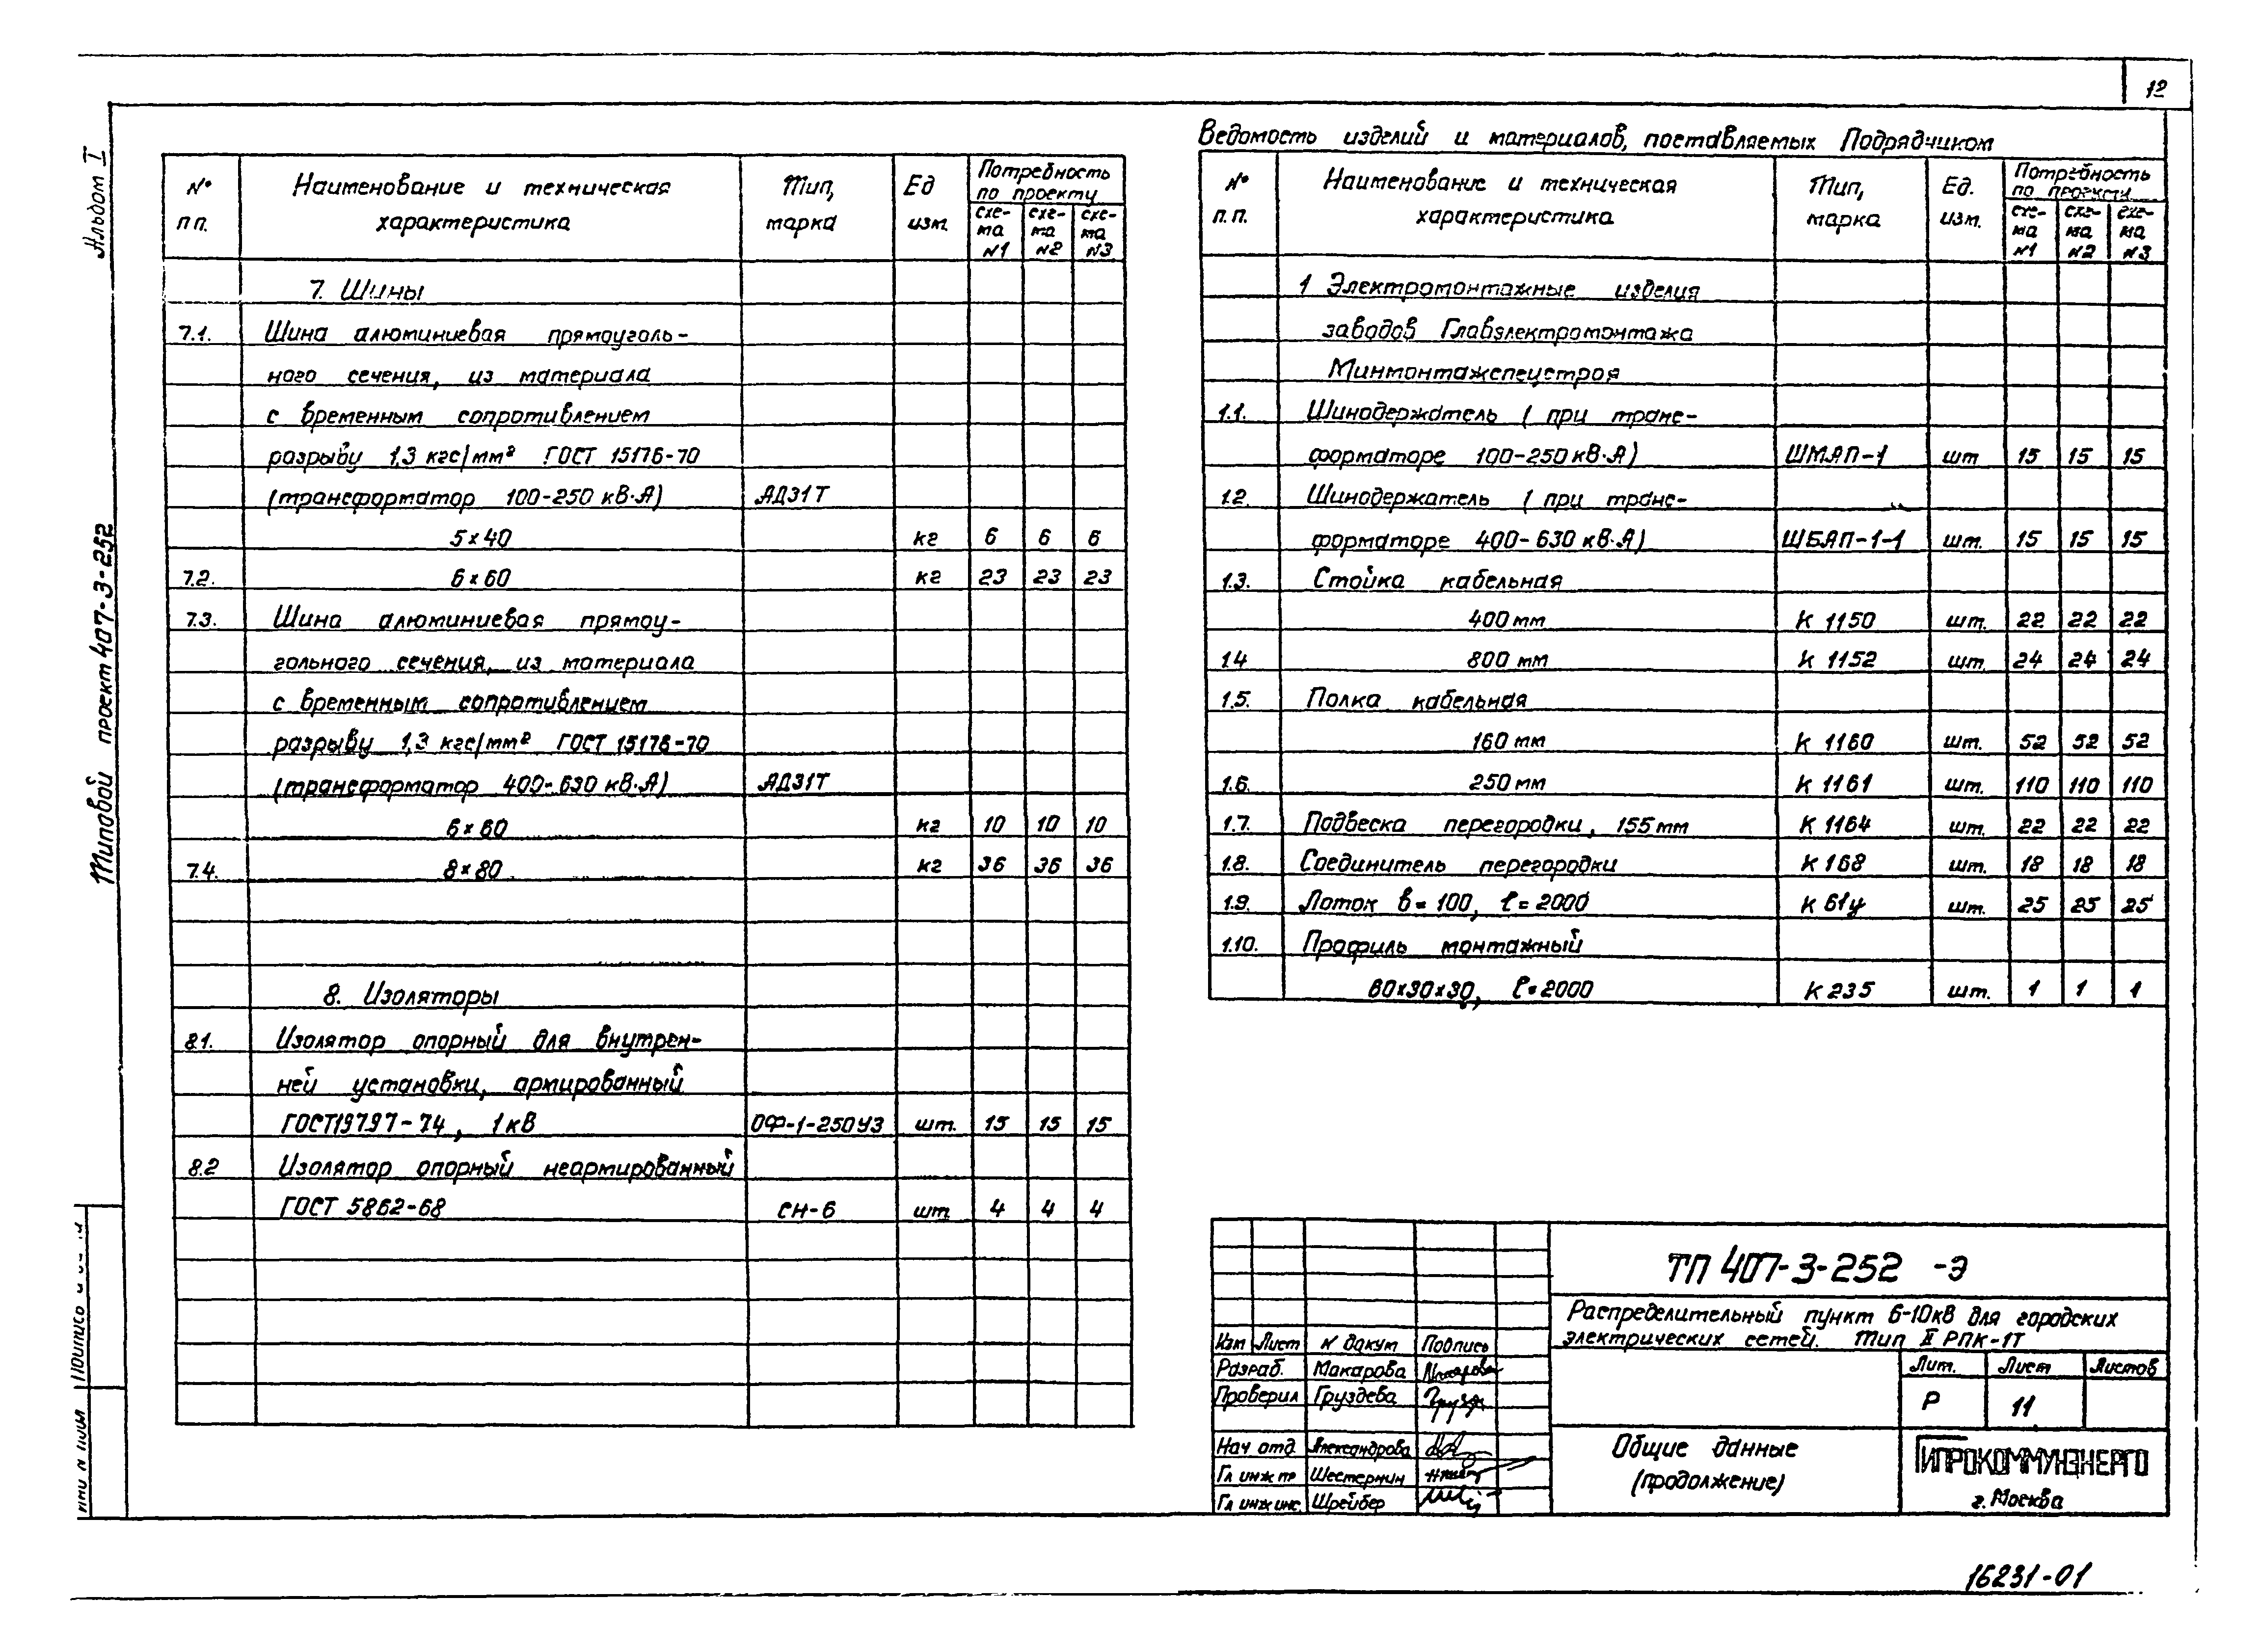 12
Альбом I
Типовой проект 407-3-252
№ п п.
Наименование и техническая характеристика
Тип, марка
Ед изм.
Потребность по проекту
схе-ма N1
схе-ма N2
схе-ма N3
7. Шины
7.1. Шина алюминиевая прямоуголь-
ного сечения, из материала
с временным сопротивлением
разрыву 1,3 кгс/мм² ГОСТ 15176-70
(трансформатор 100-250 кВ·А) АД31Т
5×40 кг 6 6 6
7.2. 6×60 кг 23 23 23
7.3. Шина алюминиевая прямоу-
гольного сечения, из материала
с временным сопротивлением
разрыву 1,3 кгс/мм² ГОСТ 15176-70
(трансформатор 400-630 кВ·А) АД31Т
6×60 кг 10 10 10
7.4. 8×80 кг 36 36 36
8. Изоляторы
8.1. Изолятор опорный для внутрен-
ней установки, армированный
ГОСТ19797-74, 1кВ ОФ-1-250У3 шт. 15 15 15
8.2 Изолятор опорный неармированный
ГОСТ 5862-68 СН-6 шт. 4 4 4
Ведомость изделий и материалов, поставляемых Подрядчиком
№ п. п.
Наименование и техническая характеристика
Тип, марка
Ед. изм.
Потребность по проекту
схе-ма N1
схе-ма N2
схе-ма N3
1 Электромонтажные изделия
заводов Главэлектромонтажа
Минмонтажспецстроя
1.1. Шинодержатель (при транс-
форматоре 100-250 кВ·А) ШМАП-1 шт 15 15 15
1.2. Шинодержатель (при транс-
форматоре 400-630 кВ·А) ШБАП-1-1 шт. 15 15 15
1.3. Стойка кабельная
400 мм К 1150 шт. 22 22 22
1.4 800 мм К 1152 шт. 24 24 24
1.5. Полка кабельная
160 мм К 1160 шт. 52 52 52
1.6. 250 мм К 1161 шт. 110 110 110
1.7. Подвеска перегородки, 155мм К 1164 шт. 22 22 22
1.8. Соединитель перегородки К 168 шт. 18 18 18
1.9. Лоток в=100, ℓ=2000 К 61у шт. 25 25 25
1.10. Профиль монтажный
60×30×30, ℓ=2000 К 235 шт. 1 1 1
ТП 407-3-252 -Э
Распределительный пункт 6-10кВ для городских
электрических сетей. Тип II РПК-1Т
Изм Лист N докум Подпись
Разраб. Макарова
Проверил Груздева
Нач отд Александрова
Гл инж пр Шестернин
Гл инж инс. Шрейбер
Лит. Лист Листов
Р 11
Общие данные
(продолжение)
ГИПРОКОММУНЭНЕРГО
г. Москва
16231-01